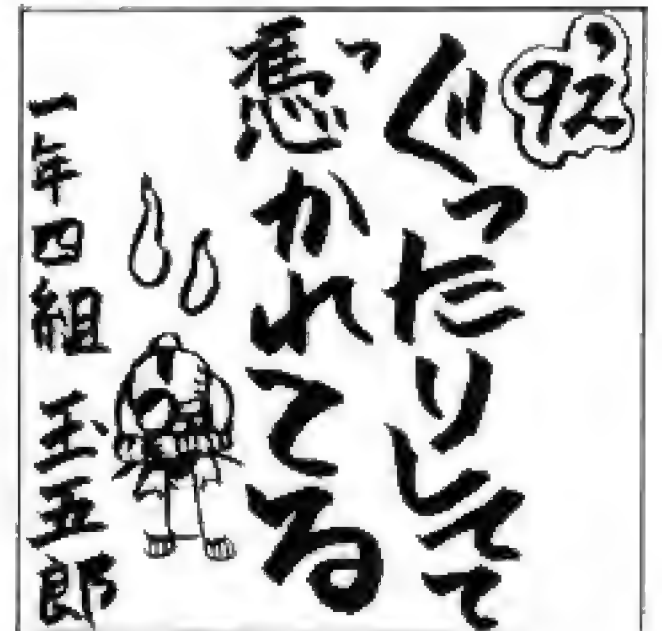 '92
ぐったりしてて
つ
憑かれてる
一年四組 玉五郎